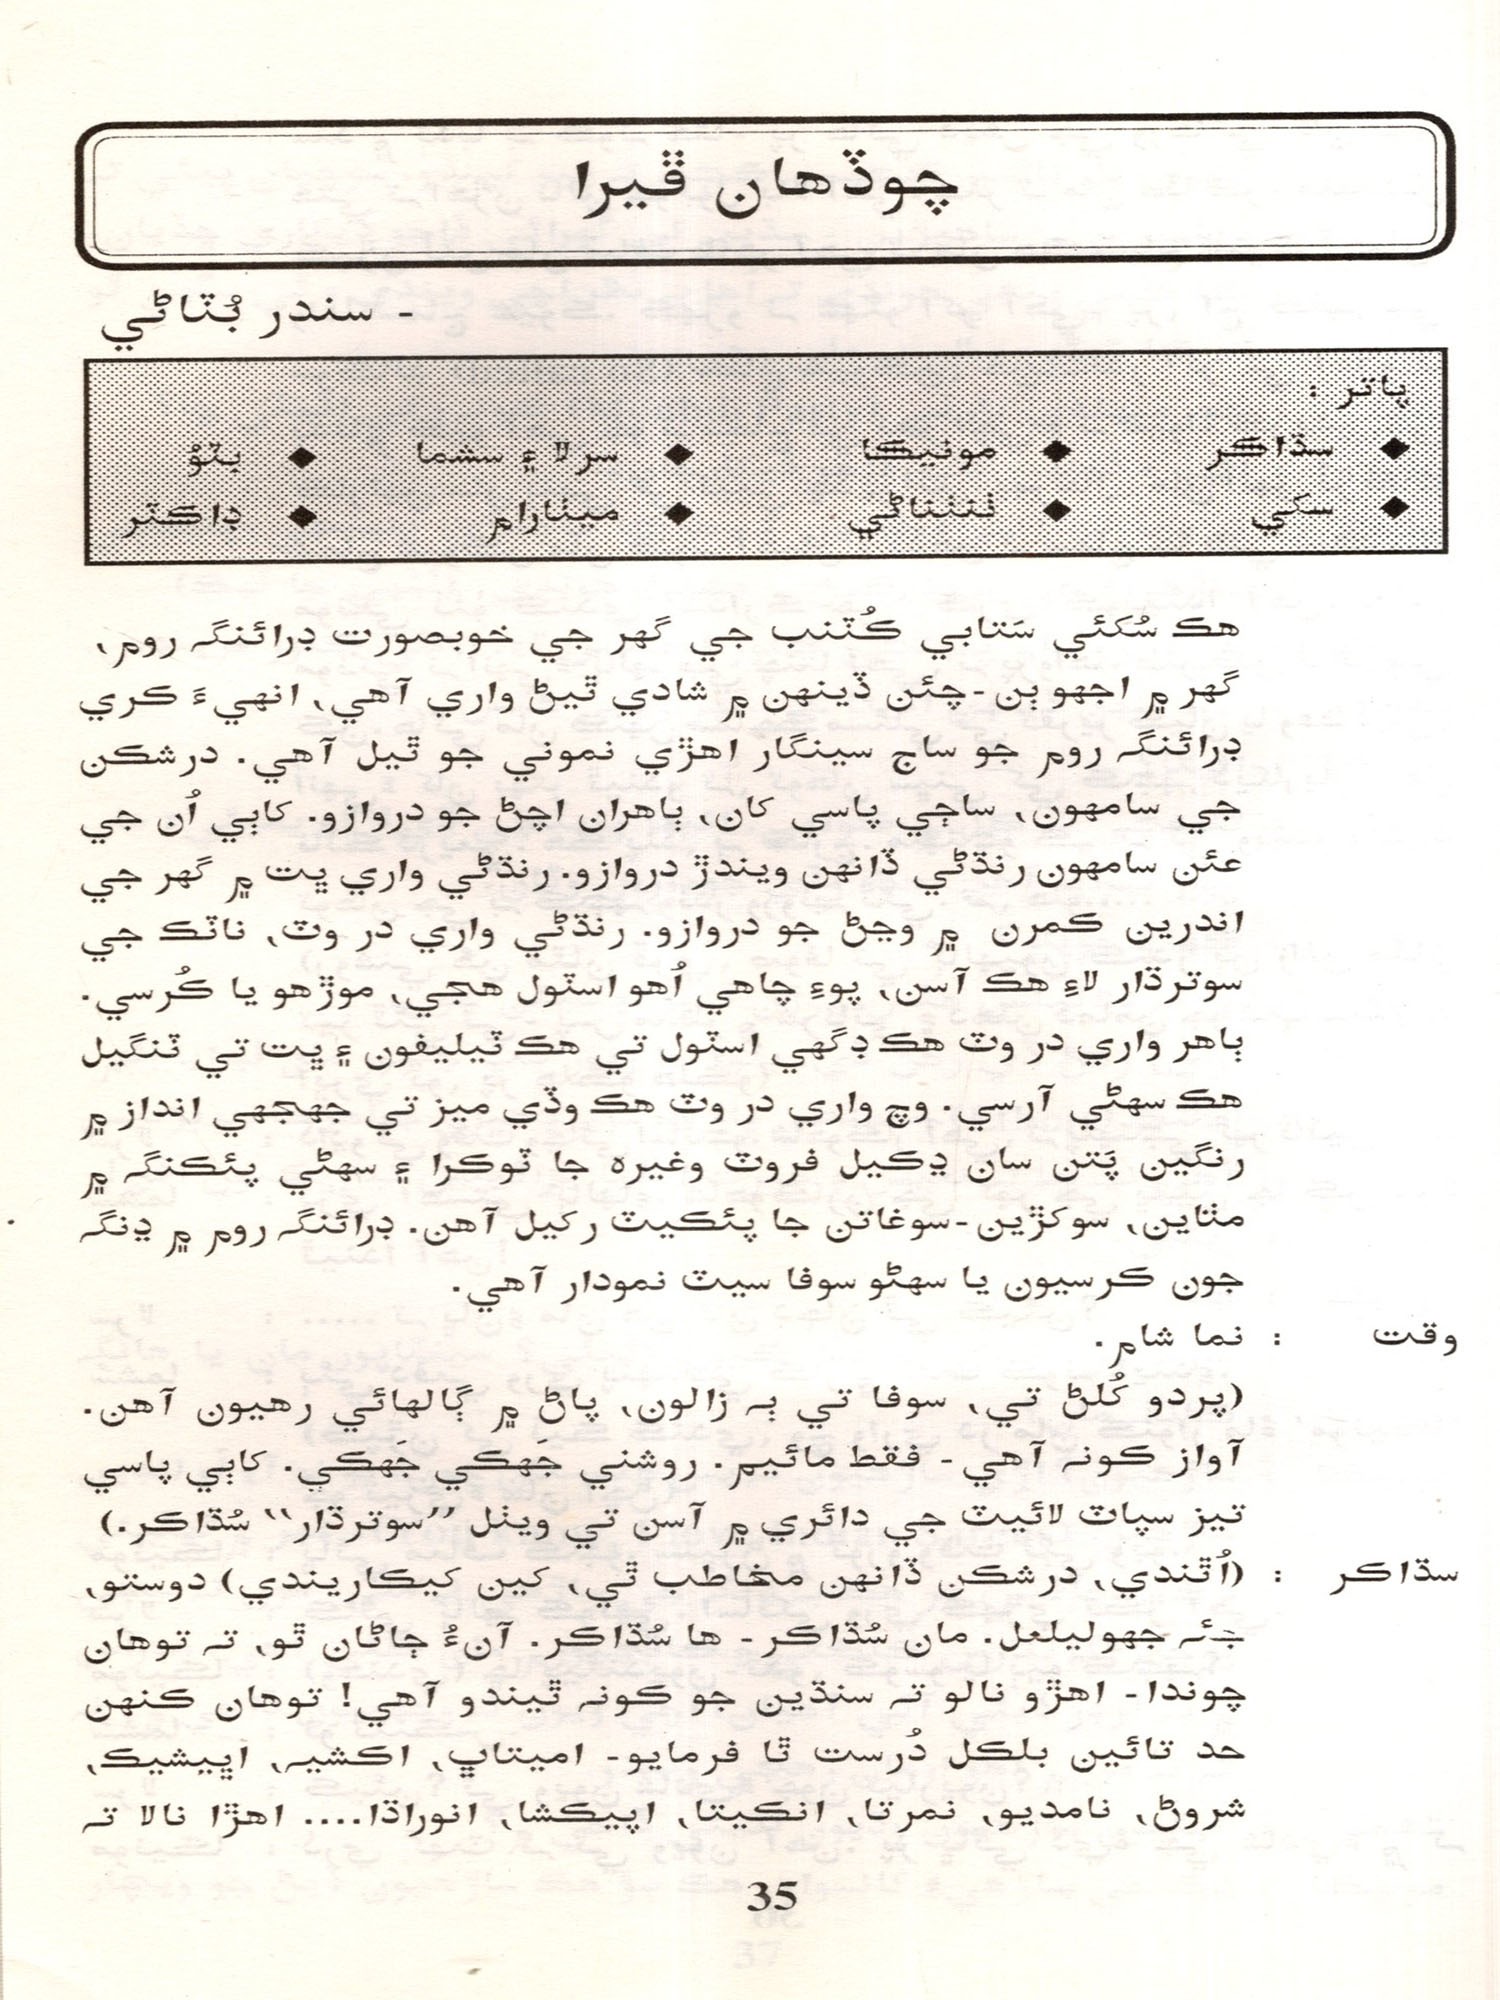 چوڏهان ڦيرا
- سندر بُٽاڻي
پاتر :
◆ سڌاڪر ◆ مونيڪا ◆ سرلا ۽ سشما ◆ پٽوُ
◆ سکي ◆ ننناڻي ◆ ميٺارام ◆ ڊاڪٽر
هڪ سُکئي سَتابي ڪُٽنب جي گهر جي خوبصورت ڊرائنگہ روم،
گهر ۾ اجهو ٻن -چئن ڏينهن ۾ شادي ٿيڻ واري آهي، انهيءَ ڪري
ڊرائنگہ روم جو ساڄ سينگار اهڙي نموني جو ٿيل آهي. درشڪن
جي سامهون، ساڄي پاسي کان، ٻاهران اچڻ جو دروازو. کاٻي اُن جي
عئن سامهون رنڌڻي ڏانهن ويندڙ دروازو. رنڌڻي واري ڀت ۾ گهر جي
اندرين ڪمرن ۾ وڃڻ جو دروازو. رنڌڻي واري در وٽ، ناٽڪ جي
سوترڌار لاءِ هڪ آسن، پوءِ چاهي اُهو اسٽول هجي، موڙهو يا ڪُرسي.
ٻاهر واري در وٽ هڪ ڊگهي اسٽول تي هڪ ٽيليفون ۽ ڀت تي ٽنگيل
هڪ سهڻي آرسي. وچ واري در وٽ هڪ وڏي ميز تي جهجهي انداز ۾
رنگين پَتن سان ڍڪيل فروٽ وغيره جا ٽوڪرا ۽ سهڻي پئڪنگہ ۾
مٺاين، سوکڙين -سوغاتن جا پئڪيٽ رکيل آهن. ڊرائنگہ روم ۾ ڍنگہ
جون ڪرسيون يا سهڻو سوفا سيٽ نمودار آهي.
وقت : نما شام.
(پردو کُلڻ تي، سوفا تي ٻہ زالون، پاڻ ۾ ڳالهائي رهيون آهن.
آواز ڪونہ آهي - فقط مائيم. روشني جَهڪي جَهڪي. کاٻي پاسي
تيز سپاٽ لائيٽ جي دائري ۾ آسن تي ويٺل ”سوترڌار“ سُڌاڪر.)
سڌاڪر : (اُٿندي، درشڪن ڏانهن مخاطب ٿي، کين کيڪاريندي) دوستو،
جئہ جهوليلعل. مان سُڌاڪر - ها سُڌاڪر. آنءُ ڄاڻان ٿو، تہ توهان
چوندا- اهڙو نالو تہ سنڌين جو ڪونہ ٿيندو آهي! توهان ڪنهن
حد تائين بلڪل دُرست ٿا فرمايو- اميتاڀ، اڪشيہ، اڀيشيڪ،
شروڻ، نامديو، نمرتا، انڪيتا، اپيڪشا، انوراڌا.... اهڙا نالا تہ
35